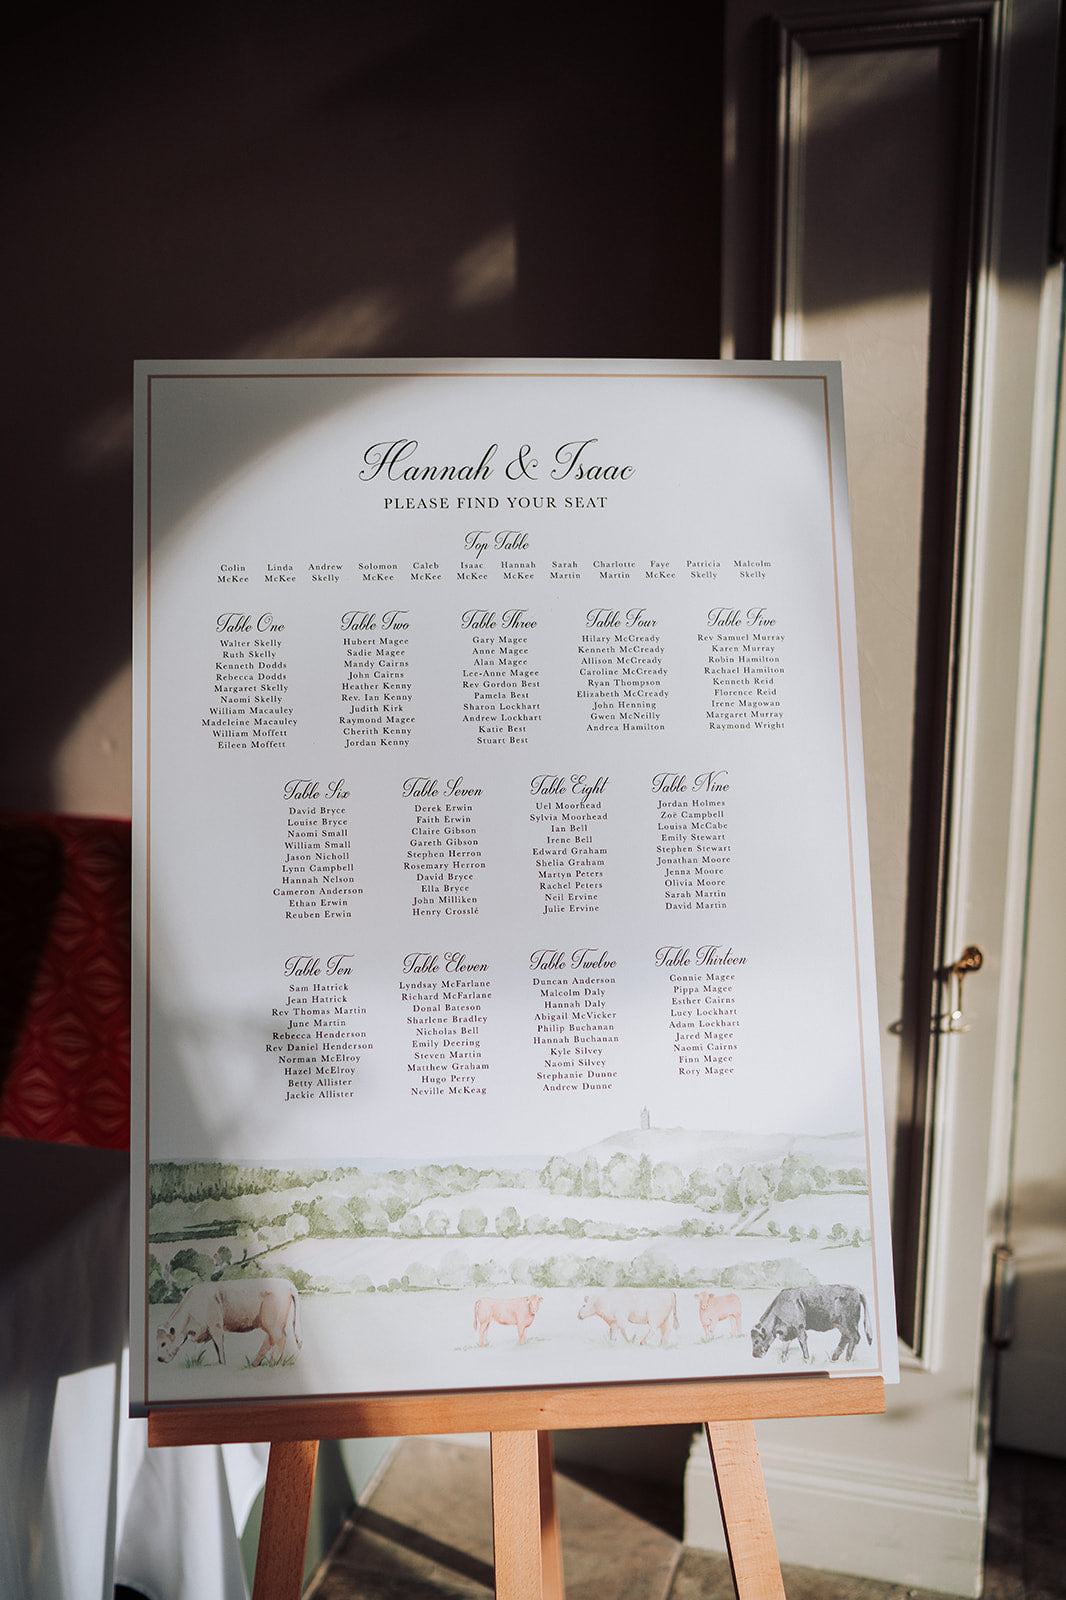 Hannah & Isaac
PLEASE FIND YOUR SEAT
Top Table
Colin Linda Andrew Solomon Caleb Isaac Hannah Sarah Charlotte Faye Patricia Malcolm
McKee McKee Skelly McKee McKee McKee McKee Martin Martin McKee Skelly Skelly
Table One
Walter Skelly
Ruth Skelly
Kenneth Dodds
Rebecca Dodds
Margaret Skelly
Naomi Skelly
William Macauley
Madeleine Macauley
William Moffett
Eileen Moffett
Table Two
Hubert Magee
Sadie Magee
Mandy Cairns
John Cairns
Heather Kenny
Rev. Ian Kenny
Judith Kirk
Raymond Magee
Cherith Kenny
Jordan Kenny
Table Three
Gary Magee
Anne Magee
Alan Magee
Lee-Anne Magee
Rev Gordon Best
Pamela Best
Sharon Lockhart
Andrew Lockhart
Katie Best
Stuart Best
Table Four
Hilary McCready
Kenneth McCready
Allison McCready
Caroline McCready
Ryan Thompson
Elizabeth McCready
John Henning
Gwen McNeilly
Andrea Hamilton
Table Five
Rev Samuel Murray
Karen Murray
Robin Hamilton
Rachael Hamilton
Kenneth Reid
Florence Reid
Irene Magowan
Margaret Murray
Raymond Wright
Table Six
David Bryce
Louise Bryce
Naomi Small
William Small
Jason Nicholl
Lynn Campbell
Hannah Nelson
Cameron Anderson
Ethan Erwin
Reuben Erwin
Table Seven
Derek Erwin
Faith Erwin
Claire Gibson
Gareth Gibson
Stephen Herron
Rosemary Herron
David Bryce
Ella Bryce
John Milliken
Henry Crosslé
Table Eight
Uel Moorhead
Sylvia Moorhead
Ian Bell
Irene Bell
Edward Graham
Shelia Graham
Martyn Peters
Rachel Peters
Neil Ervine
Julie Ervine
Table Nine
Jordan Holmes
Zoë Campbell
Louisa McCabe
Emily Stewart
Stephen Stewart
Jonathan Moore
Jenna Moore
Olivia Moore
Sarah Martin
David Martin
Table Ten
Sam Hatrick
Jean Hatrick
Rev Thomas Martin
June Martin
Rebecca Henderson
Rev Daniel Henderson
Norman McElroy
Hazel McElroy
Betty Allister
Jackie Allister
Table Eleven
Lyndsay McFarlane
Richard McFarlane
Donal Bateson
Sharlene Bradley
Nicholas Bell
Emily Deering
Steven Martin
Matthew Graham
Hugo Perry
Neville McKeag
Table Twelve
Duncan Anderson
Malcolm Daly
Hannah Daly
Abigail McVicker
Philip Buchanan
Hannah Buchanan
Kyle Silvey
Naomi Silvey
Stephanie Dunne
Andrew Dunne
Table Thirteen
Connie Magee
Pippa Magee
Esther Cairns
Lucy Lockhart
Adam Lockhart
Jared Magee
Naomi Cairns
Finn Magee
Rory Magee